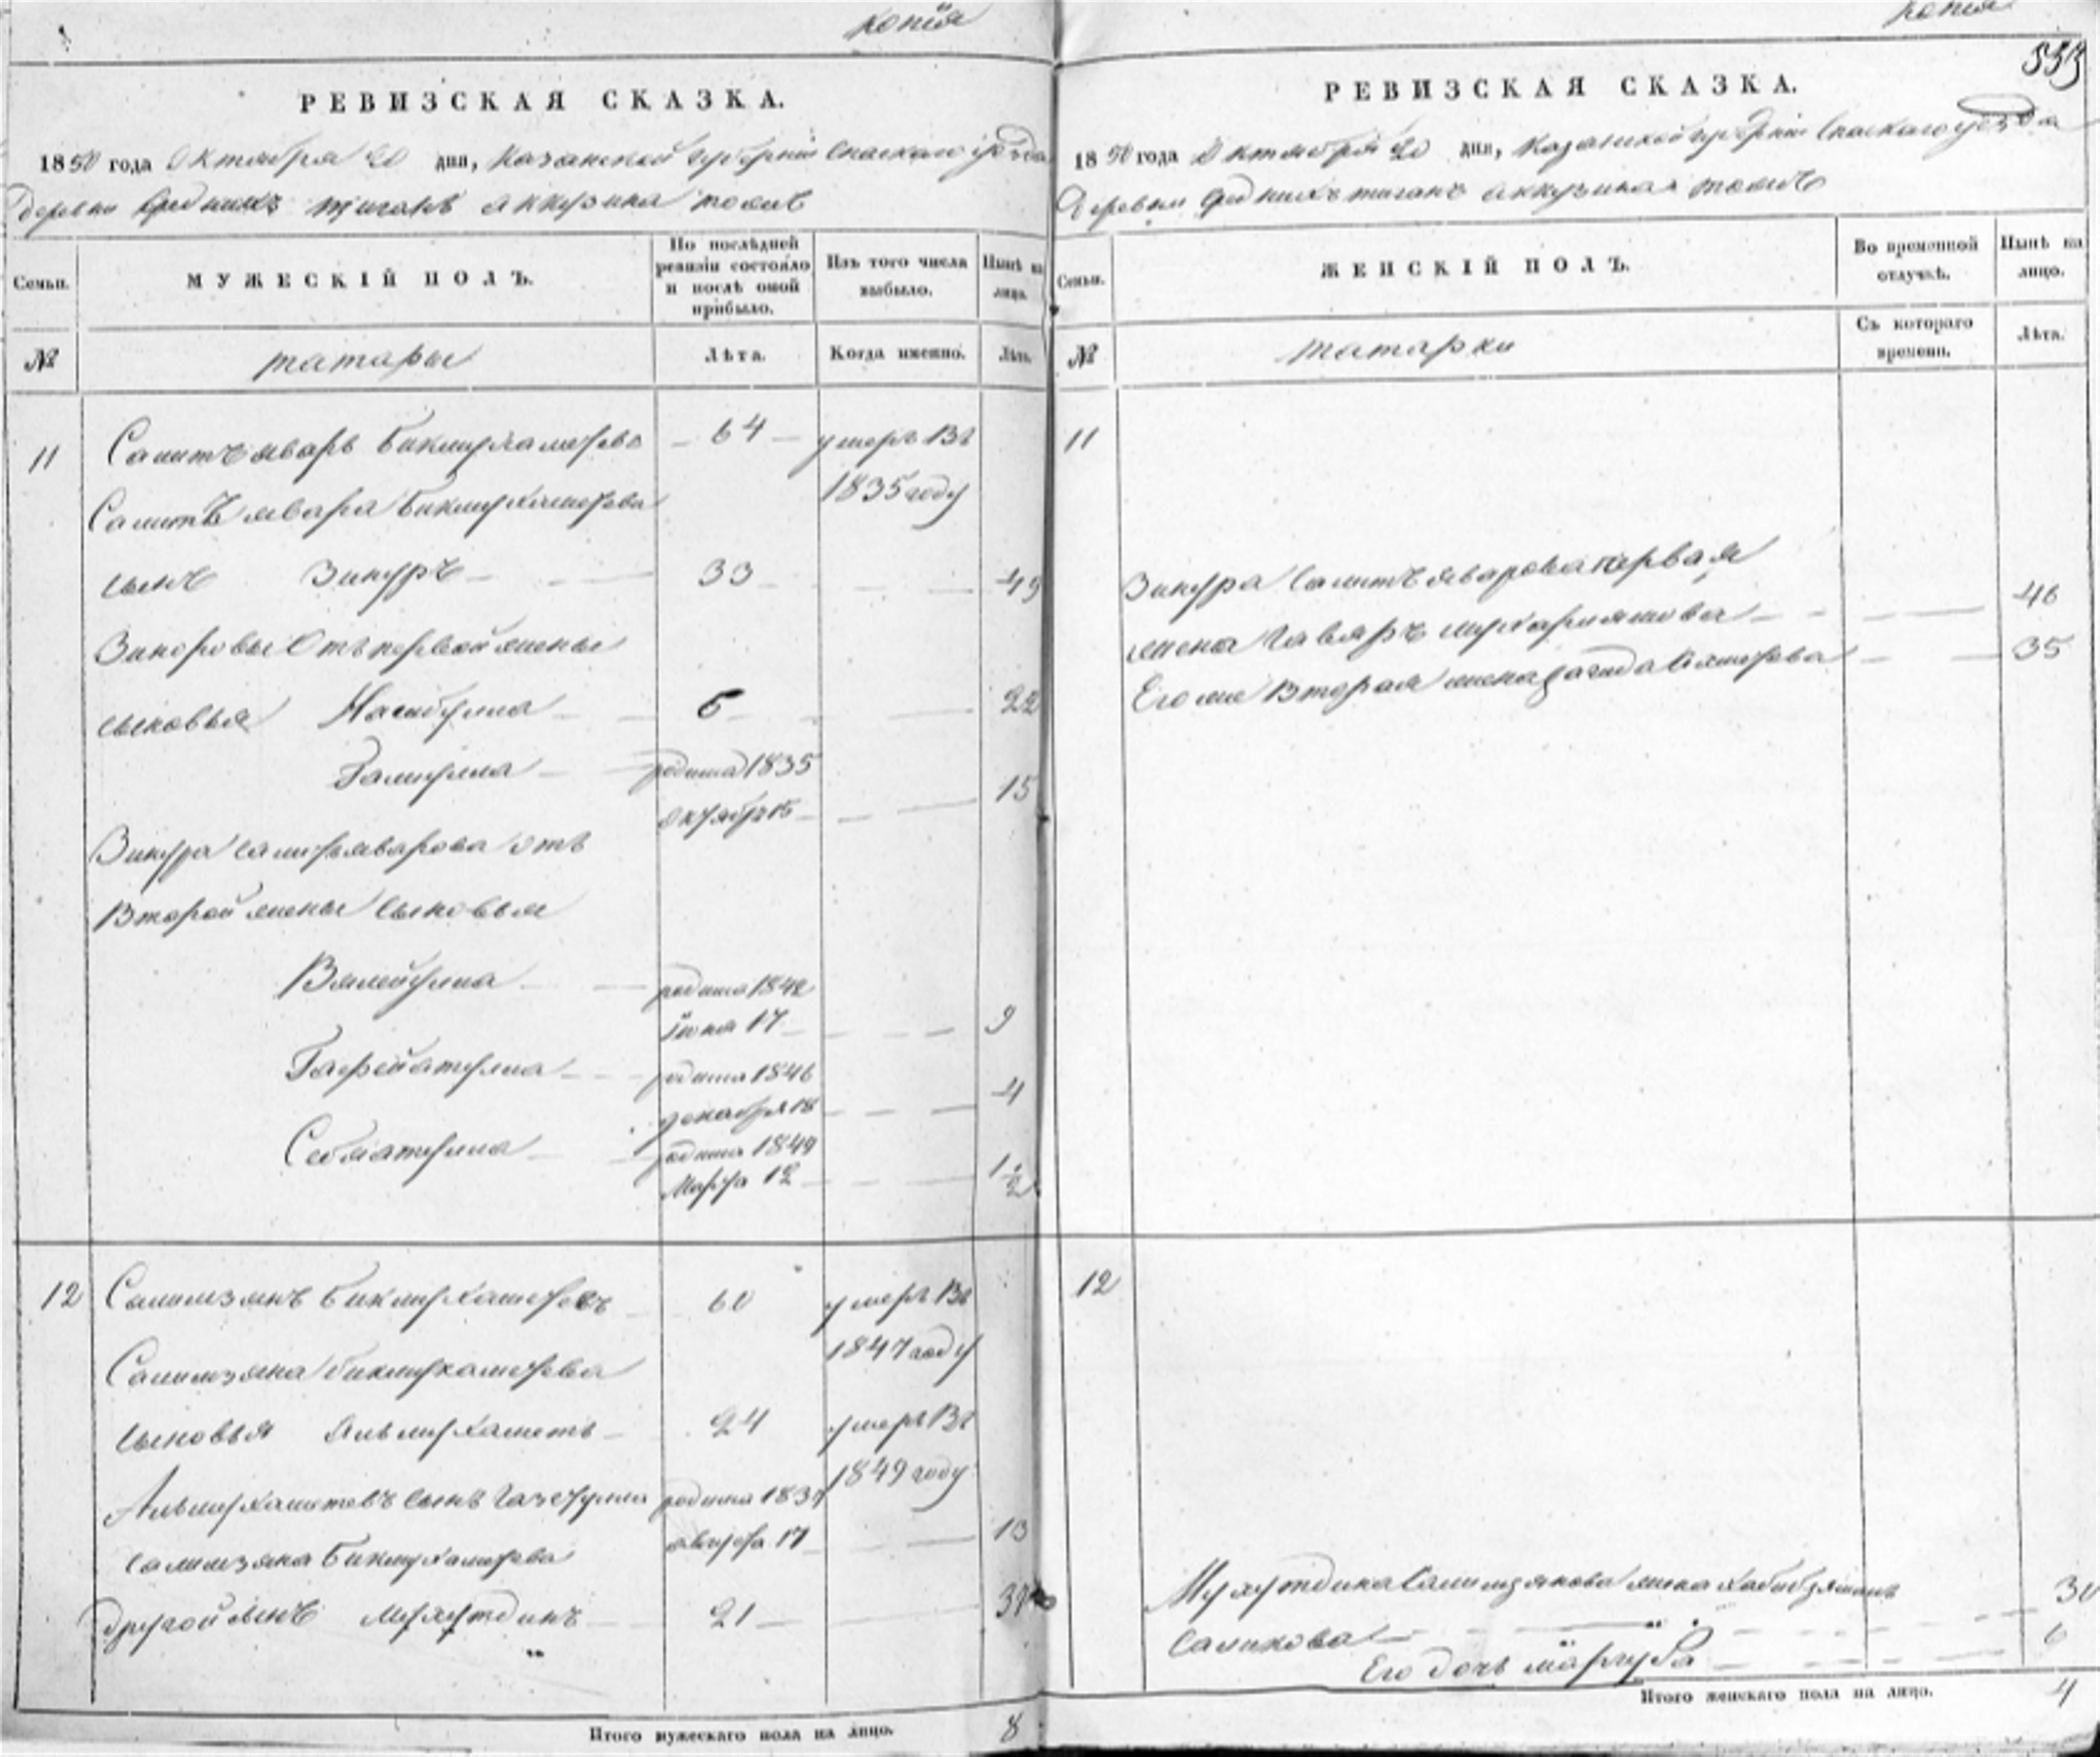 копія
РЕВИЗСКАЯ СКАЗКА.
1850 года Октября 20 дня, Казанской губерніи Спаскаго уѣзда
деревни Средникъ Тиганъ Аккузина тожъ
Семьи. МУЖЕСКІЙ ПОЛЪ. По послѣдней ревизіи состояло и послѣ оной прибыло. Изъ того числа выбыло. Нынѣ на лицо.
№ татары Лѣта. Когда именно. Лѣта.
11 Самитъяваръ Бикмухаметевъ 64 умеръ въ
1835 году
Самитъявара Бикмухаметева
сынъ Зинуръ 33 49
Зиноровы отъ первой жены
сыновья Насибулла 5 22
Галиулла родился 1835
октября 15 15
Зинура Самитъяварова отъ
второй жены сыновья
Вялейулла родился 1842
іюня 17 9
родился 1846
декабря 18 4
родился 1849
Марта 12 1 1/2
12 Салимзянъ Бикмухаметевъ 60 умеръ въ
1847 году
Салимзяна Бикмухаметева
сыновья Альмухаметъ 24 умеръ въ
1849 году
Альмухаметевъ сынъ родился 1837
августа 17 13
Салимзяна Бикмухаметева
другой сынъ Мухутдинъ 21 37
Итого мужескаго пола на лицо. 8
копія
553
РЕВИЗСКАЯ СКАЗКА.
1850 года Октября 20 дня, Казанской губерніи Спаскаго уѣзда
Деревни Среднихъ тиганъ аккузина тожъ
Семьи. ЖЕНСКІЙ ПОЛЪ. Во временной отлучкѣ. Нынѣ на лицо.
№ татарки Съ котораго времени. Лѣта.
11
Зинура Самитъяварова первая
жена Гавгяръ 46
Его же вторая жена 35
12
Мухутдина Салимзянова жена Хабибзямалъ
Салихова 30
Его дочь 6
Итого женскаго пола на лицо. 4